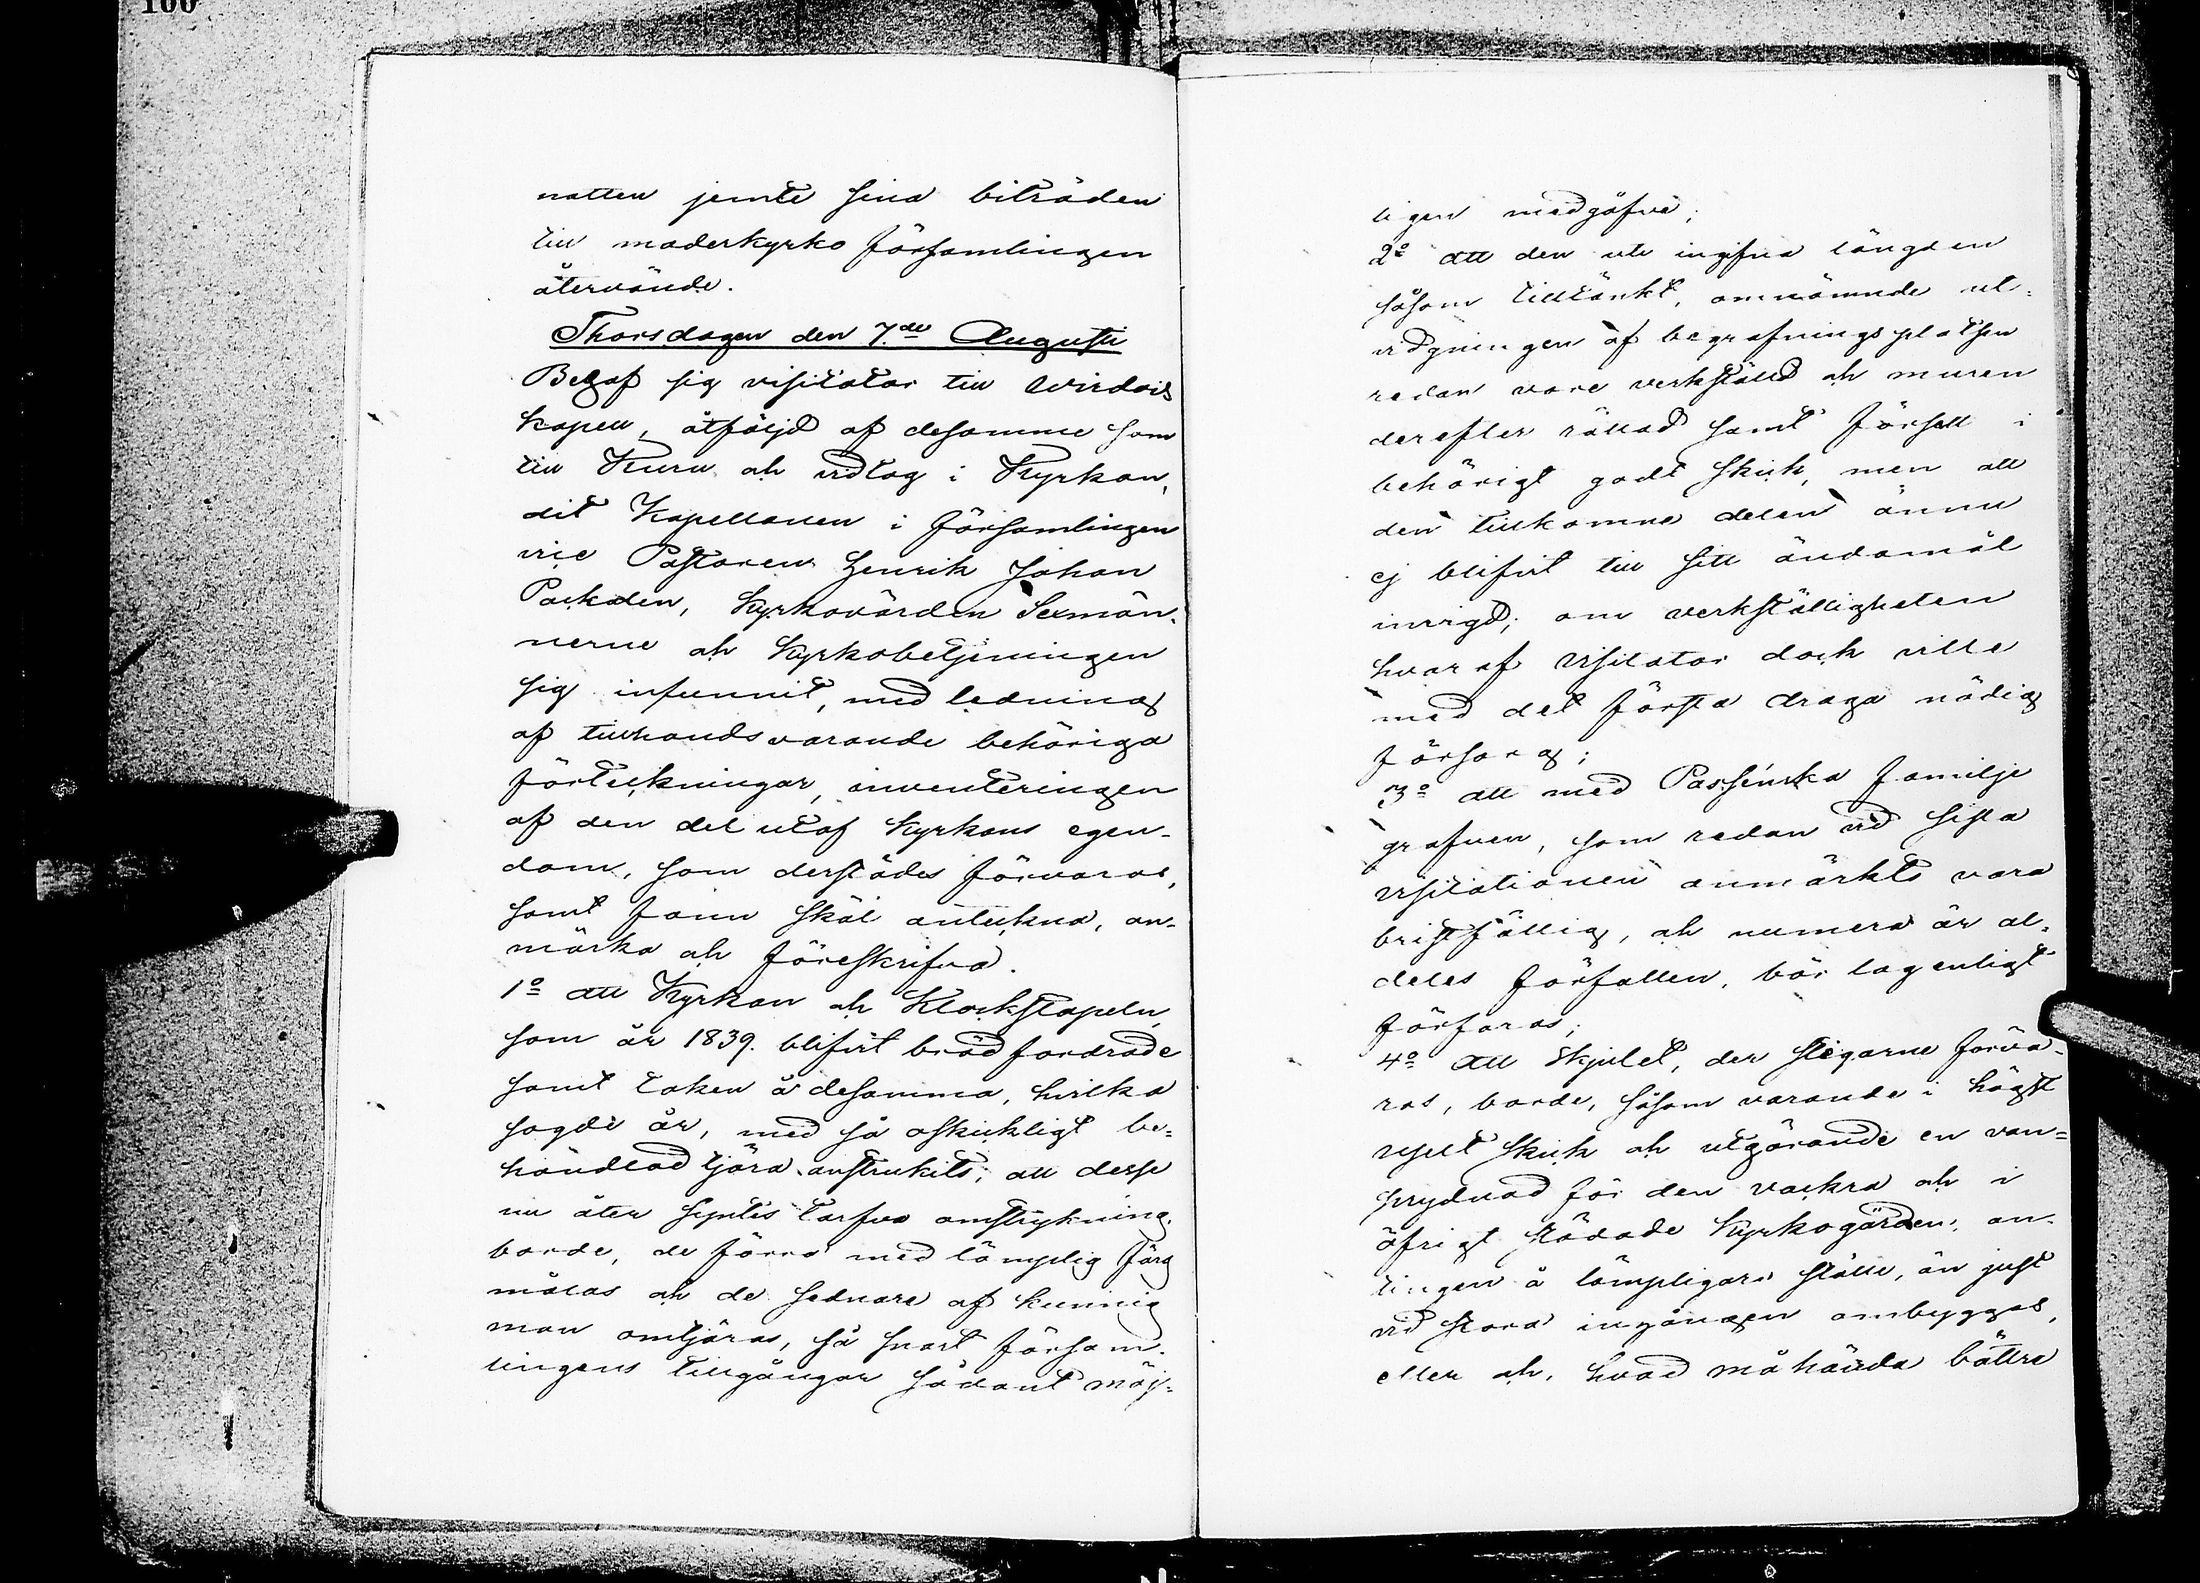 100
natten jemte sina biträden
till moderkyrko församlingen
återvände.
Thorsdagen den 7.de Augusti
Begaf sig visitator till Wirdois
kapell, åtföljd af desamme som
till Kuru och vidtog i Kyrkan,
dit Kapellanen i församlingen
vice Pastoren Henrik Johan
Packalén, Kyrkovärden Sexmän-
nerne och Kyrkobetjeningen
sig infunnit, med ledning
af tillhandsvarande behöriga
förteckningar, inventeringen
af den del utaf Kyrkans egen-
dom, som derstädes förvaras,
samt fann skäl anteckna, an-
märka och föreskrifva.
1º att Kyrkan och Klockstapeln,
som år 1839. blifvit brädfordrade
samt taken å desamma, hvilka
sagde år, med så oskickligt be-
handlad tjära anstrukits; att desse
nu åter syntes tarfva omstrykning.
borde, de förra med lämplig färg
målas och de sednare af kunnig
man omtjäras, så snart försam-
lingens tillgångar sådant möj-
ligen medgåfve;
2º att den uti ingifna längden
såsom tilltänkt, omnämnde ut-
vidgningen af begrafningsplatsen
redan vore verkställd och muren
derefter rättad samt försatt i
behörigt godt skick, men att
den tillkomna delen ännu
ej blifvit till sitt ändamål
invigd; om verkställigheten
hvaraf visitator dock ville
med det första draga nödig
försorg;
3º att med Passénska familje
grafven, som redan vid sista
visitationen anmärkts vara
bristfällig, och numera är al-
deles förfallen, bör lagenligt
förfaras;
4º att skjulet, der stegarne förva-
ras, borde, såsom varande i högst
uselt skick och utgörande en van-
prydnad för den vackra och i
öfrigt städade Kyrkogården, an-
tingen å lämpligare ställe, än just
vid stora ingången ombyggas,
eller och, hvad måhända bättre